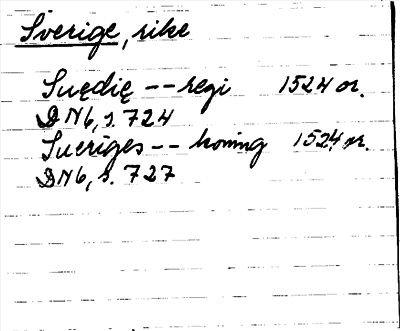 Sverige, rike
Suędię -- regi 1524 or.
DN6, s. 724
Sueriges -- koning 1524 or.
DN6, s. 727